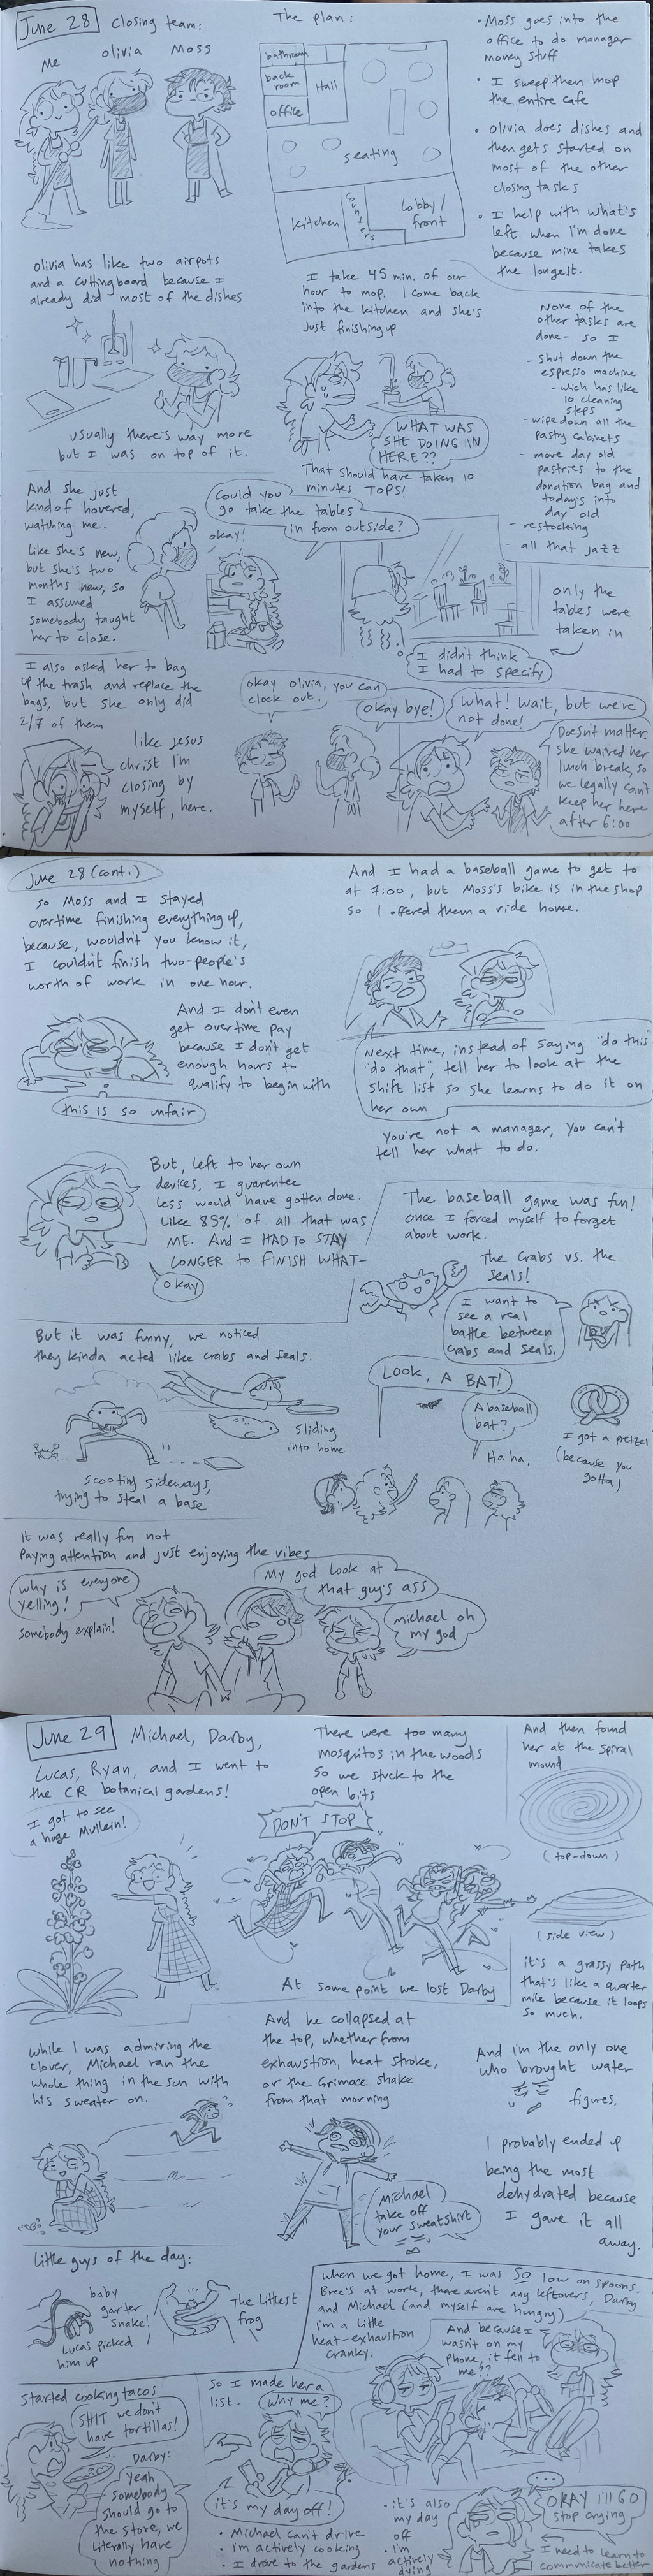 June 28
closing team:
Me
olivia
Moss
The plan:
bathroom
back
room
office
Hall
seating
kitchen
counters
Lobby/
front
• Moss goes into the
office to do manager
money stuff
• I sweep then mop
the entire cafe
• olivia does dishes and
then gets started on
most of the other
closing tasks
• I help with what's
left when I'm done
because mine takes
the longest.
olivia has like two airpots
and a cuttingboard because I
already did most of the dishes
usually there's way more
but I was on top of it.
I take 45 min. of our
hour to mop. I come back
into the kitchen and she's
just finishing up
WHAT WAS
SHE DOING IN
HERE??
That should have taken 10
minutes TOPS!
None of the
other tasks are
done - so I
- shut down the
espresso machine
- wich has like
10 cleaning
steps
- wipe down all the
pastry cabinets
- move day old
pastries to the
donation bag and
today's into
day old
- restocking
- all that jazz
And she just
kind of hovered,
watching me.
Like she's new,
but she's two
months new, so
I assumed
somebody taught
her to close.
Could you
go take the tables
in from outside?
okay!
only the
tables were
taken in
I didn't think
I had to specify
I also asked her to bag
up the trash and replace the
bags, but she only did
2/7 of them
like jesus
christ I'm
closing by
myself, here.
okay olivia, you can
clock out.
okay bye!
What! wait, but we're
not done!
Doesn't matter.
she waived her
lunch break, so
we legally can't
keep her here
after 6:00
June 28 (cont.)
so Moss and I stayed
overtime finishing everything up,
because, wouldn't you know it,
I couldn't finish two-people's
worth of work in one hour.
And I don't even
get overtime pay
because I don't get
enough hours to
qualify to begin with
this is so unfair
And I had a baseball game to get to
at 7:00, but Moss's bike is in the shop
so I offered them a ride home.
Next time, instead of saying "do this"
"do that", tell her to look at the
shift list so she learns to do it on
her own
You're not a manager, you can't
tell her what to do.
But, left to her own
devices, I guarentee
less would have gotten done.
Like 85% of all that was
ME. And I HAD TO STAY
LONGER TO FINISH WHAT-
okay
The baseball game was fun!
once I forced myself to forget
about work.
The Crabs vs. the
seals!
I want to
see a real
battle between
crabs and seals.
But it was funny, we noticed
they kinda acted like crabs and seals.
scooting sideways,
trying to steal a base
sliding
into home
LOOK, A BAT!
A baseball
bat?
Haha.
I got a pretzel
(because you
gotta)
It was really fun not
paying attention and just enjoying the vibes
why is everyone
yelling!
somebody explain!
My god look at
that guy's ass
Michael oh
my god
June 29
Michael, Darby,
Lucas, Ryan, and I went to
the CR botanical gardens!
I got to see
a huge Mullein!
There were too many
mosquitos in the woods
so we stuck to the
open bits
DON'T STOP
At some point we lost Darby
And then found
her at the spiral
mound
(top-down)
(side view)
it's a grassy path
that's like a quarter
mile because it loops
so much.
while I was admiring the
clover, Michael ran the
whole thing in the sun with
his sweater on.
And he collapsed at
the top, whether from
exhaustion, heat stroke,
or the Grimace shake
from that morning
Michael
take off
your sweatshirt
And I'm the only one
who brought water
figures.
I probably ended up
being the most
dehydrated because
I gave it all
away.
Little guys of the day:
baby
garter
snake!
Lucas picked
him up
The littlest
frog
when we got home, I was SO low on spoons.
Bree's at work, there aren't any leftovers, Darby
and Michael (and myself are hungry)
I'm a little
heat-exhaustion
cranky.
And because I
wasn't on my
phone, it fell to
me??
Started cooking tacos
SHIT we don't
have tortillas!
Darby:
Yeah
somebody
should go to
the store, we
literally have
nothing
so I made her a
list.
why me?
it's my day off!
• Michael can't drive
• I'm actively cooking
• I drove to the gardens
• it's also
my day
off
• I'm
actively
dying
...
OKAY I'll GO
stop crying
I need to learn to
communicate better